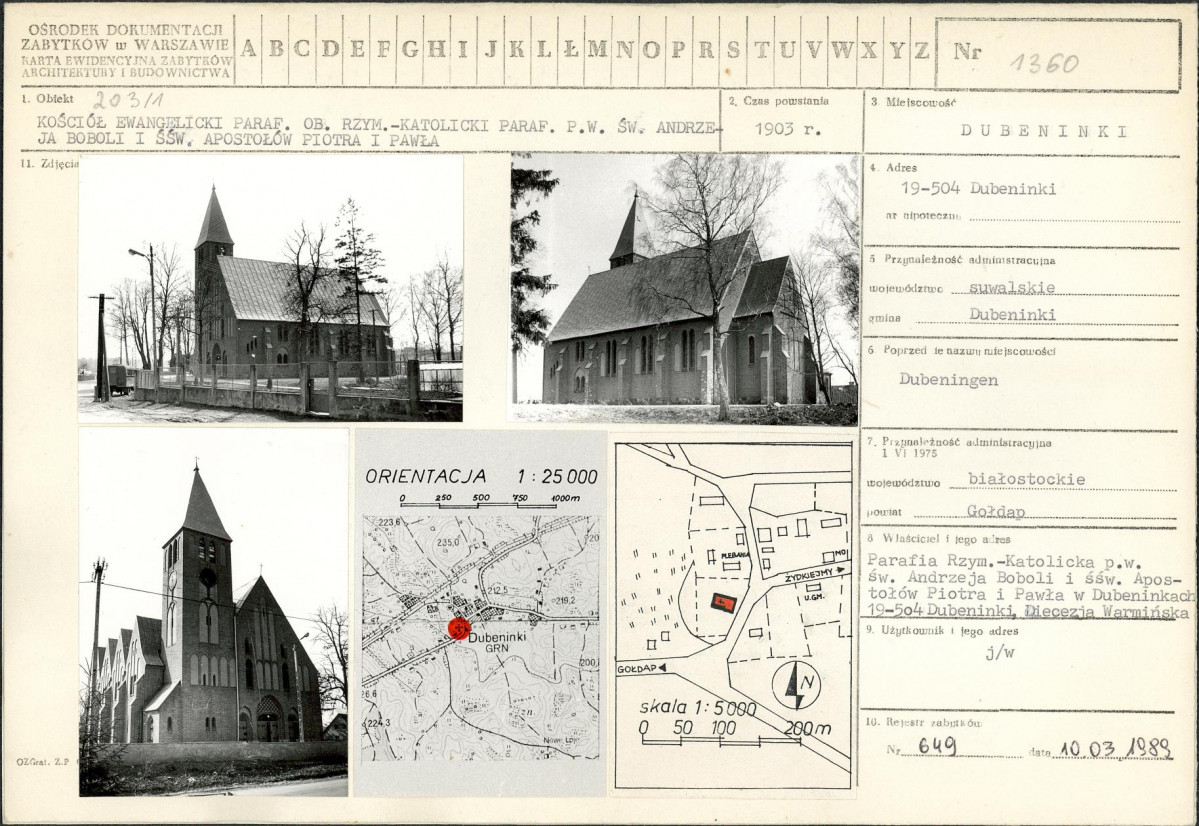 OŚRODEK DOKUMENTACJI
ZABYTKÓW w WARSZAWIE
KARTA EWIDENCYJNA ZABYTKÓW
ARCHITEKTURY I BUDOWNICTWA
A B C D E F G H I J K L Ł M N O P R S T U V W X Y Z
Nr 1360
1. Obiekt 203/1
KOŚCIÓŁ EWANGELICKI PARAF. OB. RZYM.-KATOLICKI PARAF. P.W. ŚW. ANDRZE-
JA BOBOLI I ŚŚW. APOSTOŁÓW PIOTRA I PAWŁA
2. Czas powstania
1903 r.
3 Miejscowość
DUBENINKI
11. Zdjęcia
4. Adres
19-504 Dubeninki
nr hipoteczny
5 Przynależność administracyjna
województwo suwalskie
gmina Dubeninki
6 Poprzednie nazwy miejscowości
Dubeningen
7. Przynależność administracyjna
1 VI 1975
województwo białostockie
powiat Gołdap
8 Właściciel i jego adres
Parafia Rzym.-Katolicka p.w.
św. Andrzeja Boboli i śśw. Apos-
tołów Piotra i Pawła w Dubeninkach
19-5o4 Dubeninki, Diecezja Warmińska
9. Użytkownik i jego adres
j/w
10. Rejestr zabytków
Nr 649 data 10.03.1989
ORIENTACJA 1:25 000
0 250 500 750 1000m
223,6
235,0
212,5
219,2
200,
Dubeninki
GRN
26,6
224,3
zn.
20
PLEBANIA
MO
ŻYTKIEJMY
U.GM.
GOŁDAP
N
skala 1:5000
0 50 100 200m
OZGraf. Z.P.